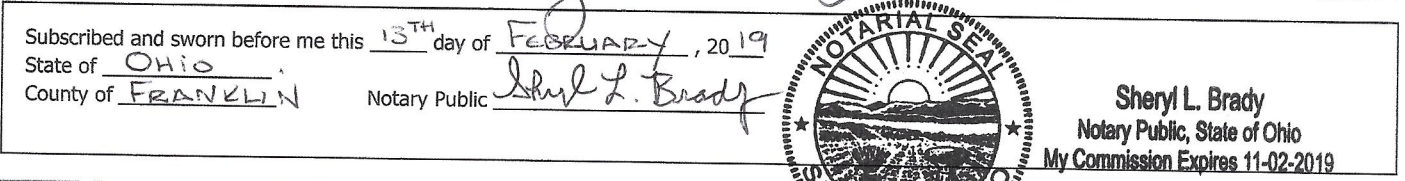 Subscribed and sworn before me this 13TH day of FEBRUARY, 2019
State of OHiO
County of FRANKLIN Notary Public Sheryl L. Brady
NOTARIAL SEAL
Sheryl L. Brady
Notary Public, State of Ohio
My Commission Expires 11-02-2019